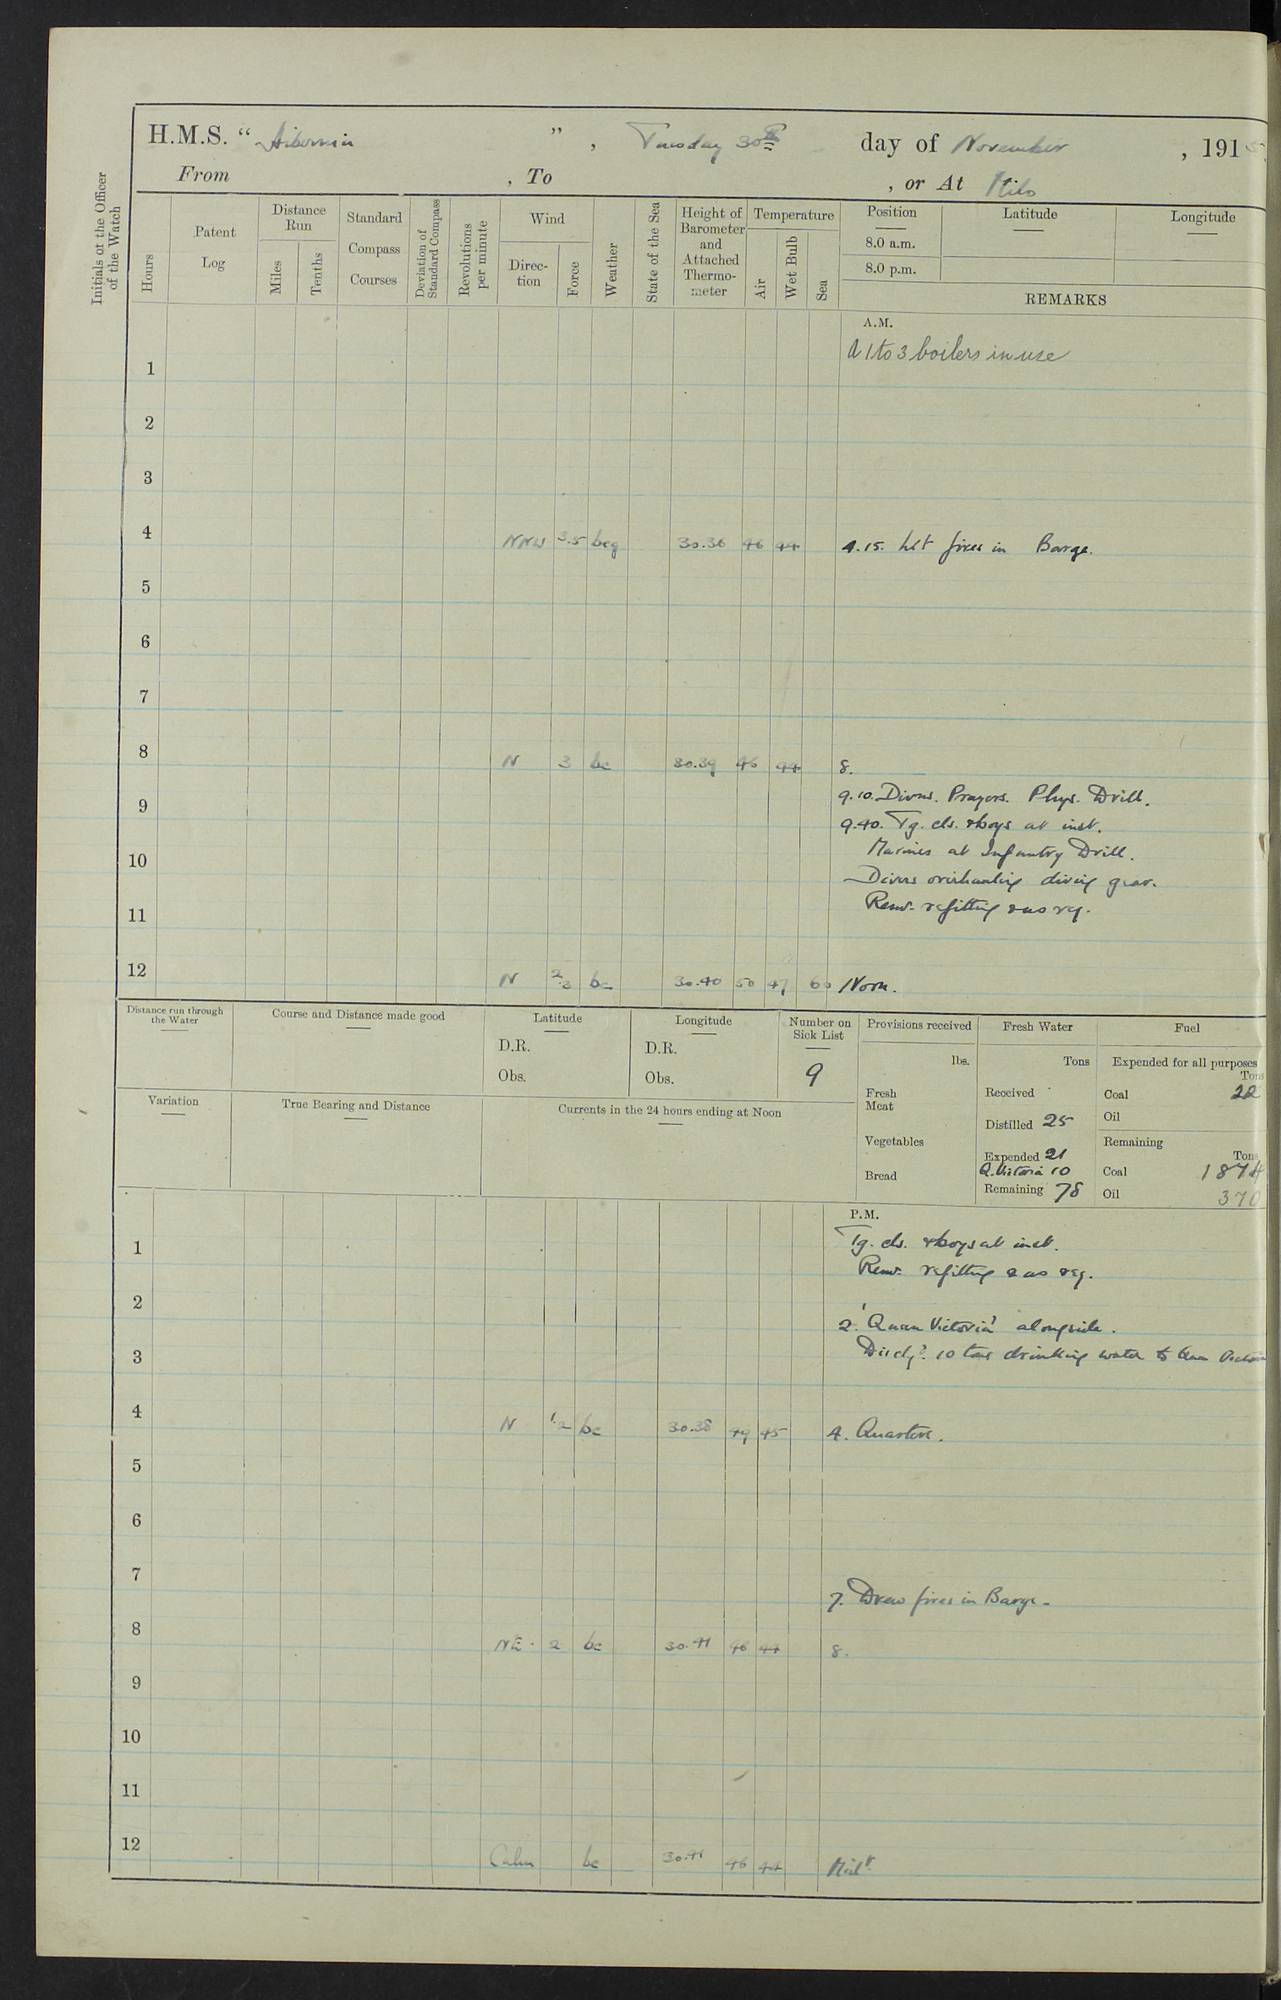 H.M.S. “ Hibernia ” , Tuesday 30th day of November , 1915
From , To , or At Milo
Initials of the Officer of the Watch
Hours
Patent Log
Distance Run
Miles
Tenths
Standard Compass Courses
Deviation of Standard Compass
Revolutions per minute
Wind
Direction
Force
Weather
State of the Sea
Height of Barometer and Attached Thermometer
Temperature
Air
Wet Bulb
Sea
Position Latitude Longitude
8.0 a.m.
8.0 p.m.
REMARKS
A.M.
1 to 3 boilers in use
1
2
3
4 NNW 3.5 bcq 30.36 46 44 4.15. Lit fires in Barge.
5
6
7
8 N 3 bc 30.39 46 44 8.
9 9.10. Divns. Prayers. Phys. Drill.
9.40. Tg. cls. & boys at inst.
10 Marines at Infantry Drill.
Divers overhauling diving gear.
11 Remr. refitting & as req.
12 N 2.3 bc 30.40 50 47 60 Noon.
Distance run through the Water
Course and Distance made good
Latitude
D.R.
Obs.
Longitude
D.R.
Obs.
Number on Sick List
9
Provisions received
lbs.
Fresh Meat
Vegetables
Bread
Fresh Water
Tons
Received
Distilled 25
Expended 21
Q. Victoria 10
Remaining 78
Fuel
Expended for all purposes
Tons
Coal 22
Oil
Remaining
Tons
Coal 1874
Oil 370
Variation
True Bearing and Distance
Currents in the 24 hours ending at Noon
P.M.
1 Tg. cls. & boys at inst.
Remr. refitting & as req.
2 2. 'Queen Victoria' alongside.
3 Dischd. 10 tons drinking water to Queen Victoria
4 N 1.2 bc 30.38 49 45 4. Quarters.
5
6
7 7. Drew fires in Barge.
8 NE. 2 bc 30.41 46 44 8.
9
10
11
12 Calm bc 30.41 46 44 Midt.